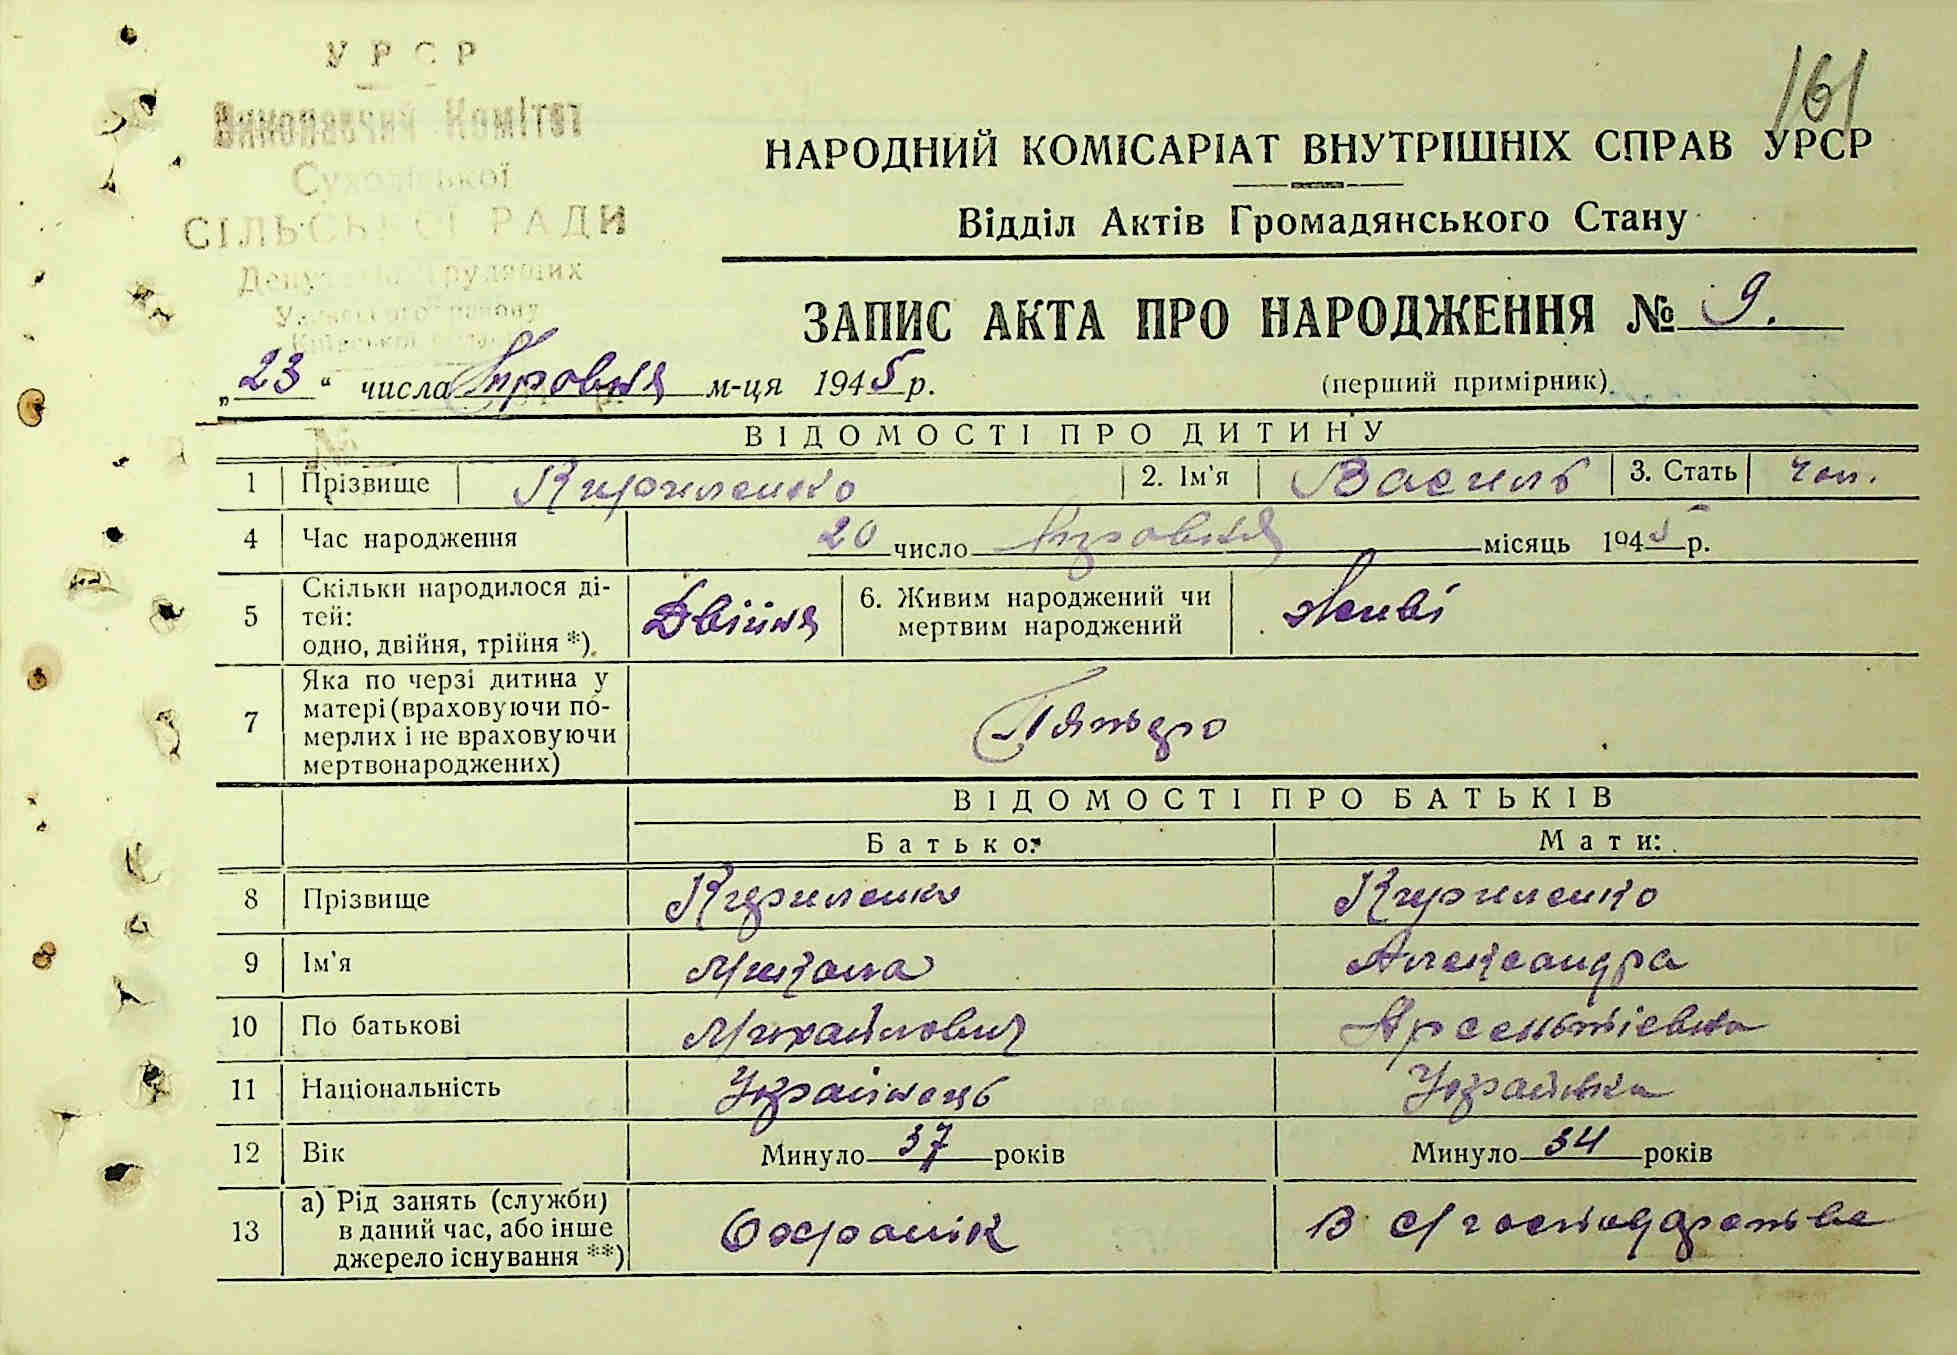 161
УРСР
Виконавчий Комітет
СІЛЬСЬКОЇ РАДИ
НАРОДНИЙ КОМІСАРІАТ ВНУТРІШНІХ СПРАВ УРСР
Відділ Актів Громадянського Стану
ЗАПИС АКТА ПРО НАРОДЖЕННЯ № 9.
„23" числа м-ця 1945 р.
(перший примірник).
№
ВІДОМОСТІ ПРО ДИТИНУ
1 Прізвище Кириленко 2. Ім'я Василь 3. Стать чол.
4 Час народження 20 число місяць 1945 р.
5 Скільки народилося ді-
тей:
одно, двійня, трійня *).
Двійня
6. Живим народжений чи
мертвим народжений
Живі
7 Яка по черзі дитина у
матері (враховуючи по-
мерлих і не враховуючи
мертвонароджених)
ВІДОМОСТІ ПРО БАТЬКІВ
Батько: Мати:
8 Прізвище Кириленко Кириленко
9 Ім'я Микола Александра
10 По батькові Михайлович Арсентіевна
11 Національність Українець Українка
12 Вік Минуло 37 років Минуло 34 років
13 а) Рід занять (служби)
в даний час, або інше
джерело існування **)
Охраник В